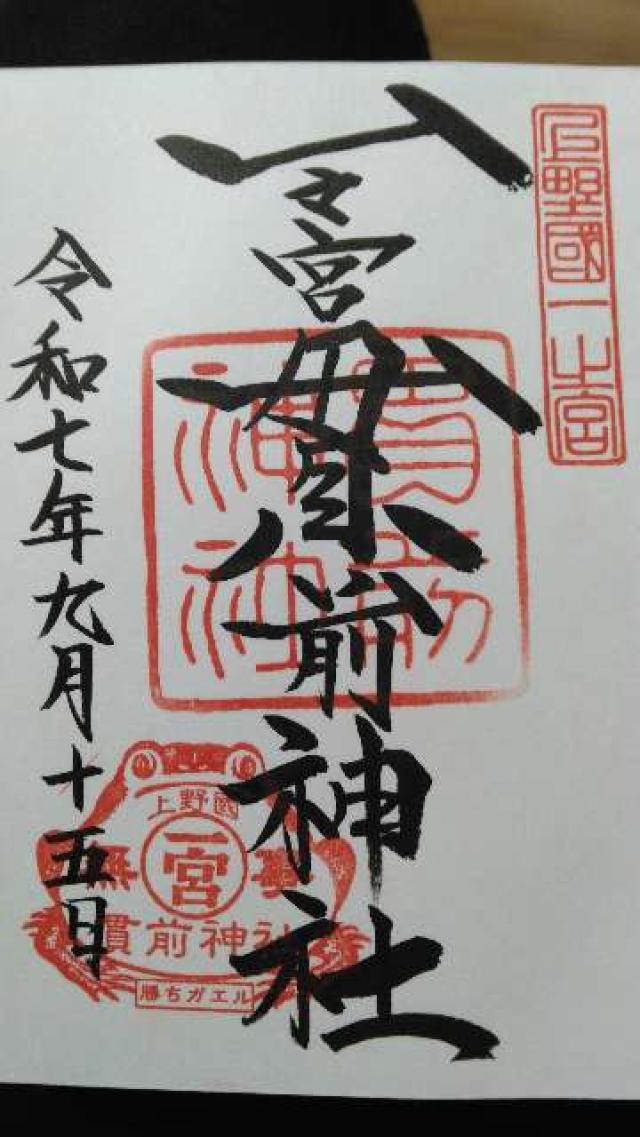 上野國一之宮
一之宮貫前神社
貫前
神社
令和七年九月十五日
上野國
一宮
無事
貫前神社
勝ちガエル